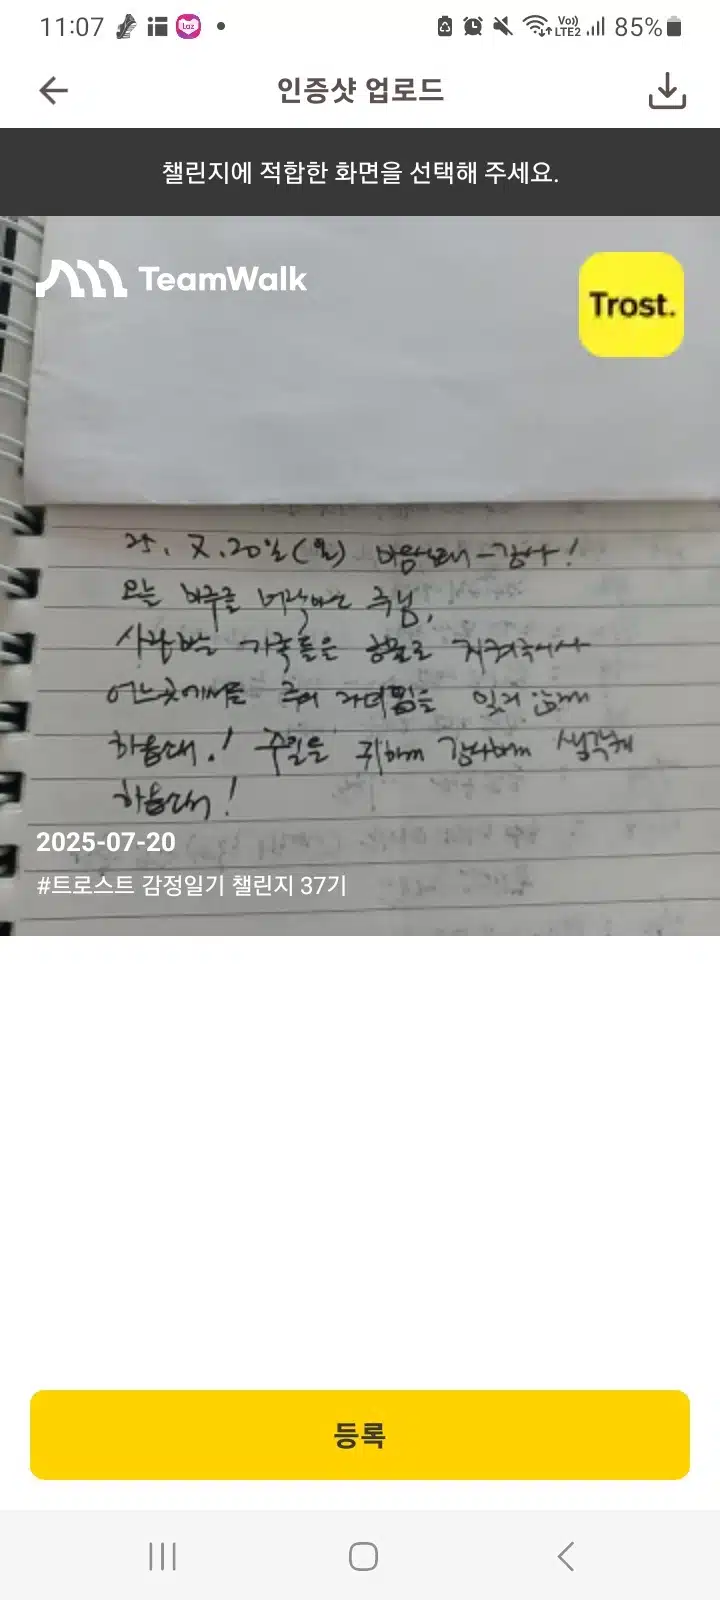 11:07
Loz
Vo)) LTE2 85%
인증샷 업로드
챌린지에 적합한 화면을 선택해 주세요.
TeamWalk
Trost.
25. 7. 20일(일) 감사!
오늘 하루를 주님,
사랑하는 가족들은
어느곳에서든 주의 잊지 않게
하옵소서! 주일을 귀하게 감사하게 생각케
하옵소서!
2025-07-20
#트로스트 감정일기 챌린지 37기
등록